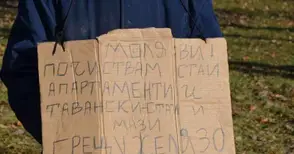 МОЛЯ ВИ!
ПОЧИСТВАМ СТАИ
АПАРТАМЕНТИ И
ТАВАНСКИ СТАИ
МАЗИ
СРЕЩУ ЖЕЛЯЗО